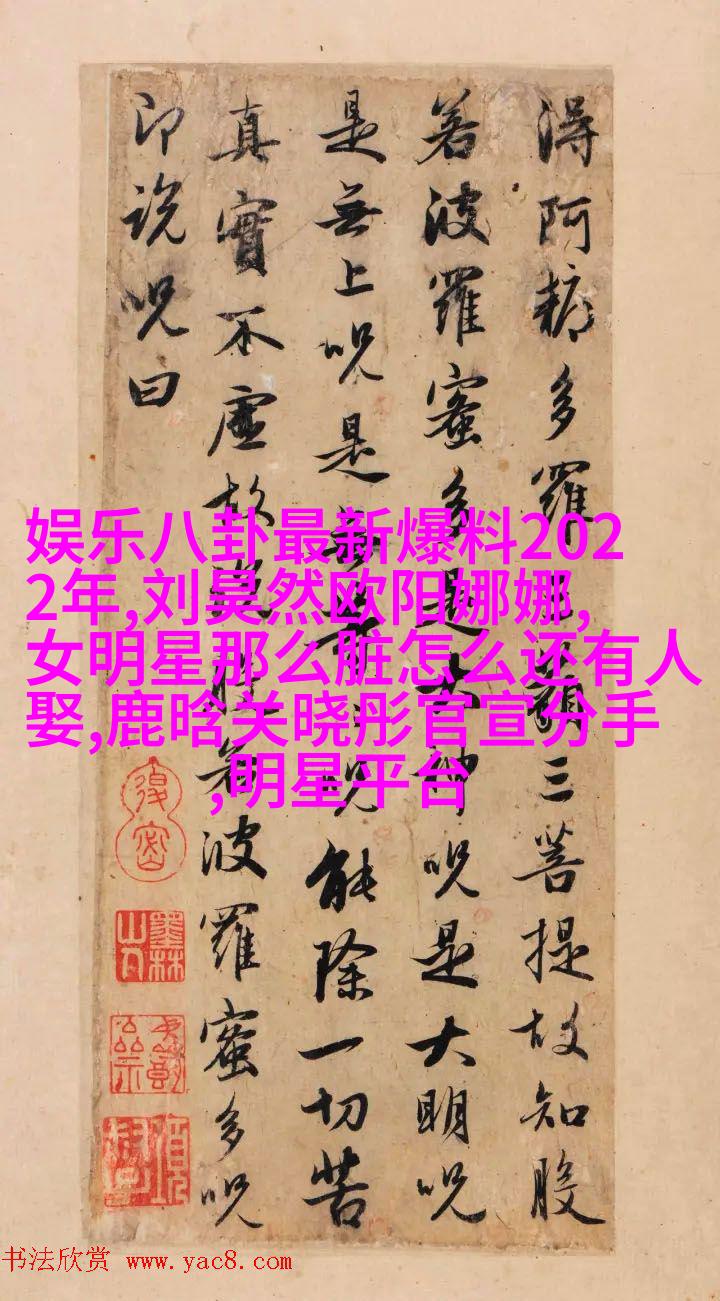 得阿耨多羅三藐三菩提故知般
若波羅蜜多是大神呪是大明呪
是無上呪是無等等呪能除一切苦
真實不虛故說般若波羅蜜多呪
即說呪曰
娱乐八卦最新爆料202
2年,刘昊然欧阳娜娜,
女明星那么脏怎么还有人
娶,鹿晗关晓彤官宣分手
,明星平台
墨林山人
书法欣赏 www.yac8.com